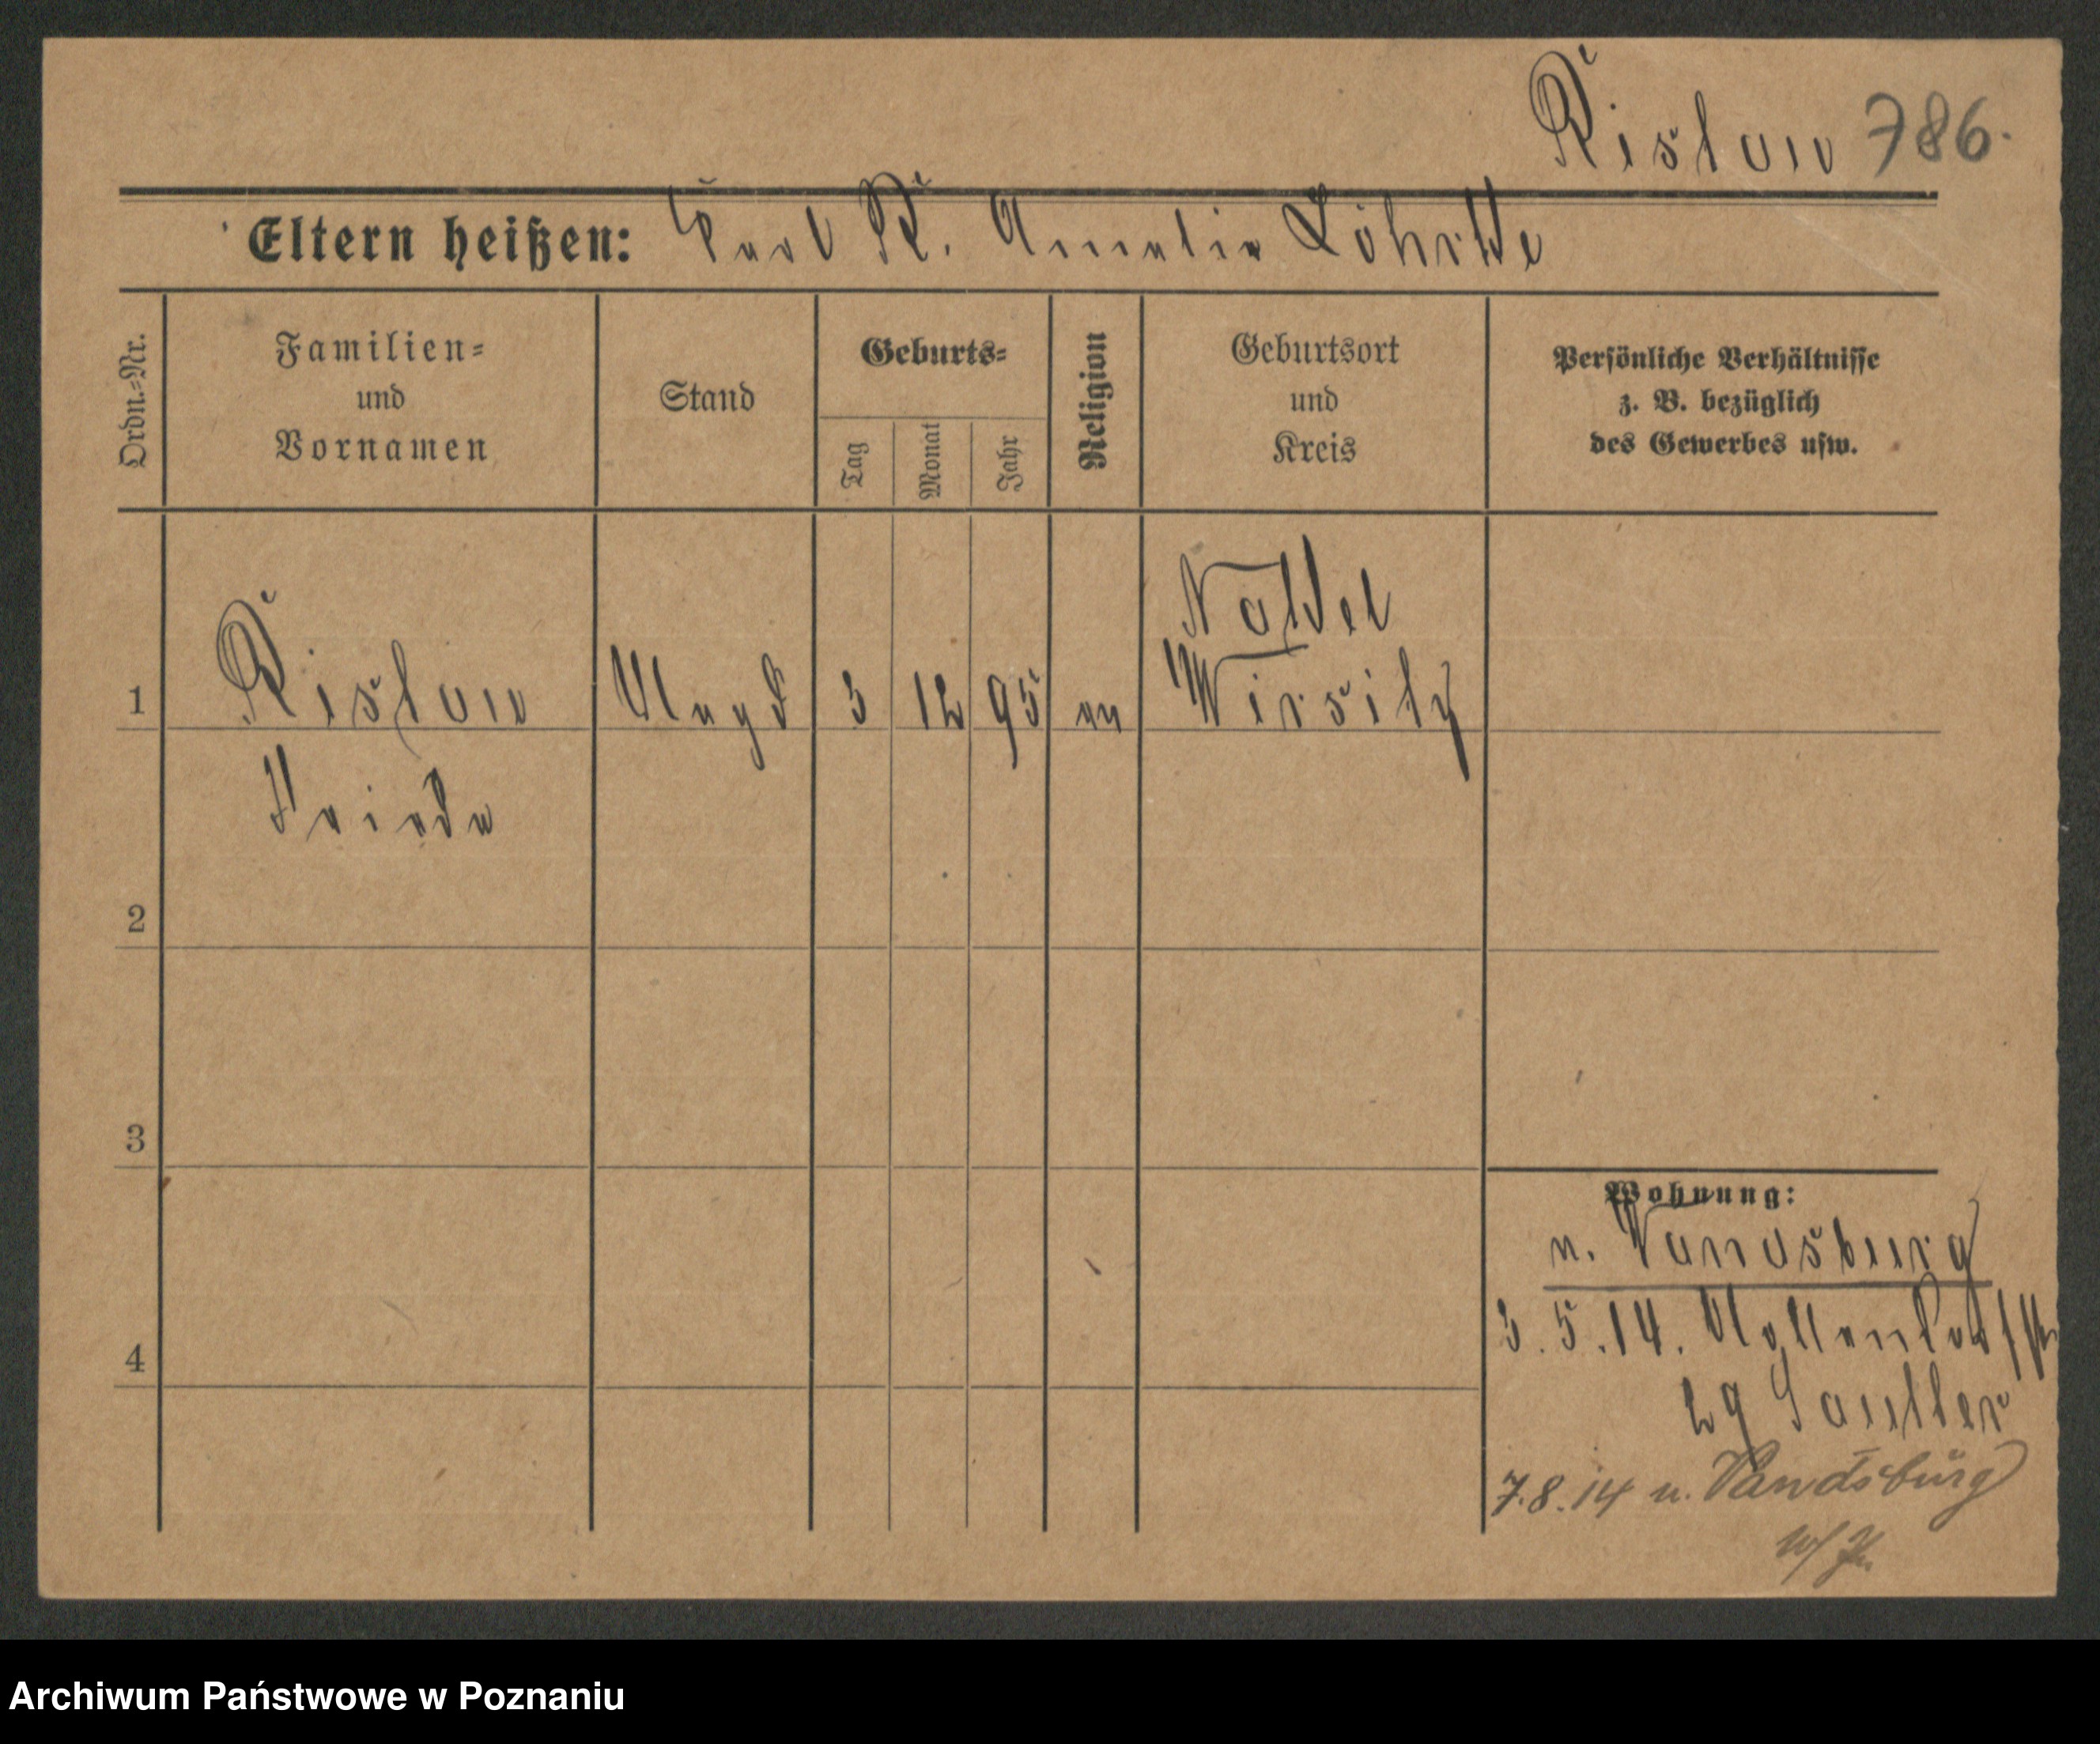 Ristow 786.
Eltern heißen: Karl R. Amalie
Ordn.=Nr.
Familien=
und
Vornamen
Stand
Geburts=
Tag
Monat
Jahr
Religion
Geburtsort
und
Kreis
Persönliche Verhältnisse
z. B. bezüglich
des Gewerbes usw.
1
Ristow
Frieda
Magd
3
12
95
ev
Wirsitz
2
3
4
Wohnung:
n. Vandsburg
3.5.14.
7.8.14 n. Vandsburg
Archiwum Państwowe w Poznaniu